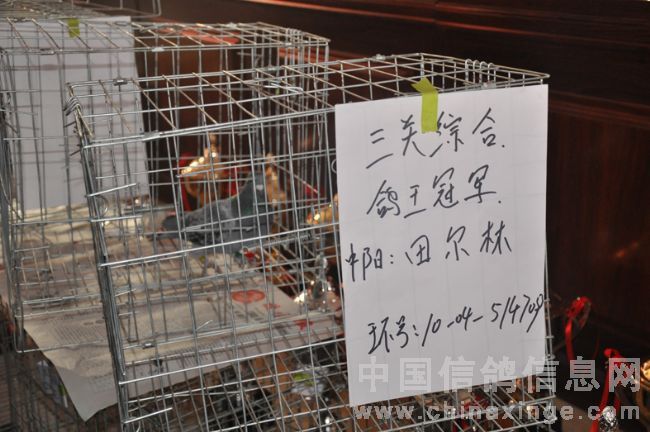 三关综合.
鸽王冠军.
中阳:田尔林
环号:10-04-514709
中国信鸽信息网
www.chinaxinge.com